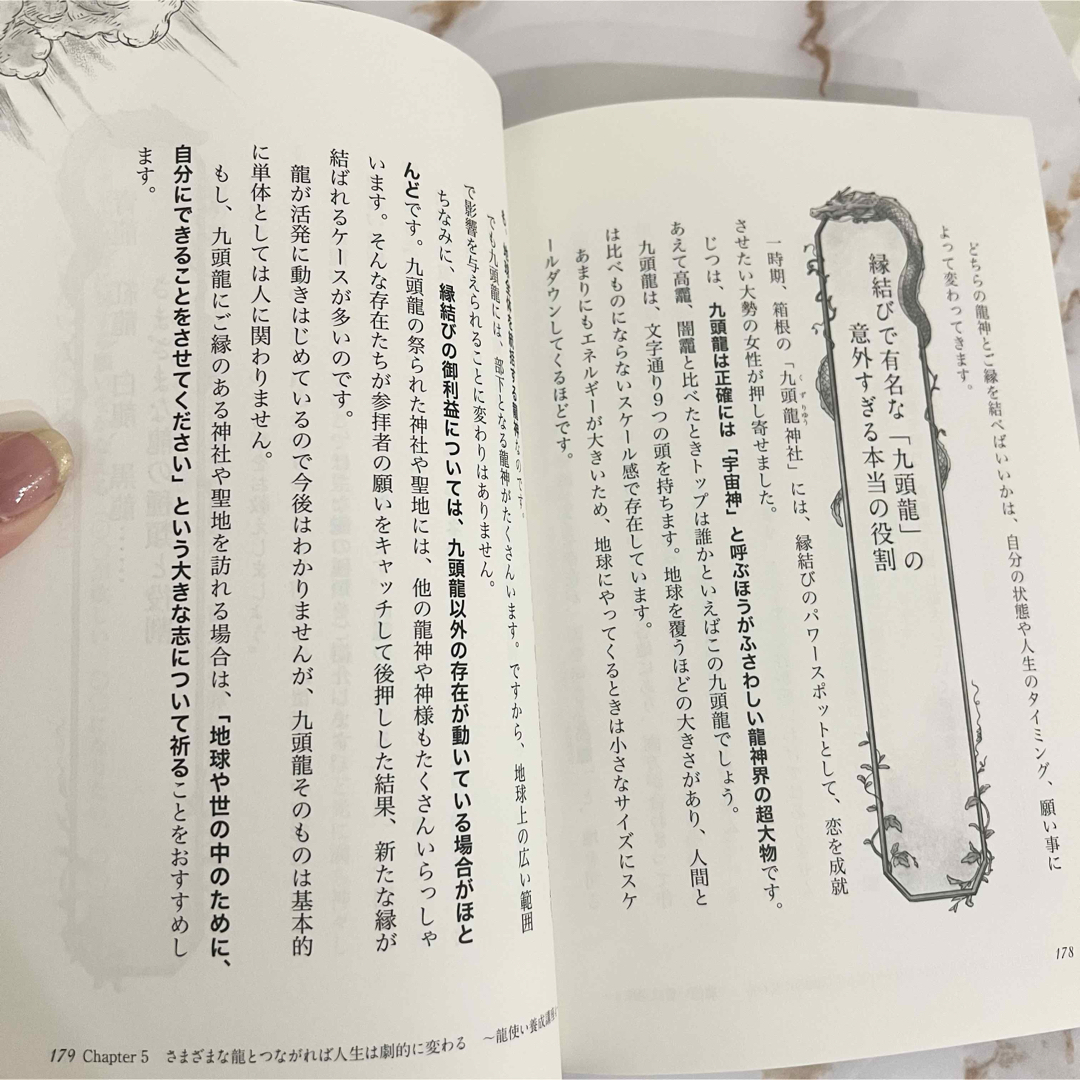 どちらの龍神とご縁を結べばいいかは、自分の状態や人生のタイミング、願い事に
よって変わってきます。
縁結びで有名な「九頭龍」の
意外すぎる本当の役割
一時期、箱根の「九頭龍神社」には、縁結びのパワースポットとして、恋を成就
くずりゆう
させたい大勢の女性が押し寄せました。
じつは、九頭龍は正確には「宇宙神」と呼ぶほうがふさわしい龍神界の超大物です。
あえて高龗、闇龗と比べたときトップは誰かといえばこの九頭龍でしょう。
九頭龍は、文字通り9つの頭を持ちます。地球を覆うほどの大きさがあり、人間と
は比べものにならないスケール感で存在しています。
あまりにもエネルギーが大きいため、地球にやってくるときは小さなサイズにスケ
ールダウンしてくるほどです。
178
も、地球全体を統括する龍神なのです。
でも九頭龍には、部下となる龍神がたくさんいます。ですから、地球上の広い範囲
で影響を与えられることに変わりはありません。
ちなみに、縁結びの御利益については、九頭龍以外の存在が動いている場合がほと
んどです。九頭龍の祭られた神社や聖地には、他の龍神や神様もたくさんいらっしゃ
います。そんな存在たちが参拝者の願いをキャッチして後押しした結果、新たな縁が
結ばれるケースが多いのです。
龍が活発に動きはじめているので今後はわかりませんが、九頭龍そのものは基本的
に単体としては人に関わりません。
もし、九頭龍にご縁のある神社や聖地を訪れる場合は、「地球や世の中のために、
自分にできることをさせてください」という大きな志について祈ることをおすすめし
ます。
179 Chapter 5 さまざまな龍とつながれば人生は劇的に変わる ～龍使い養成講座